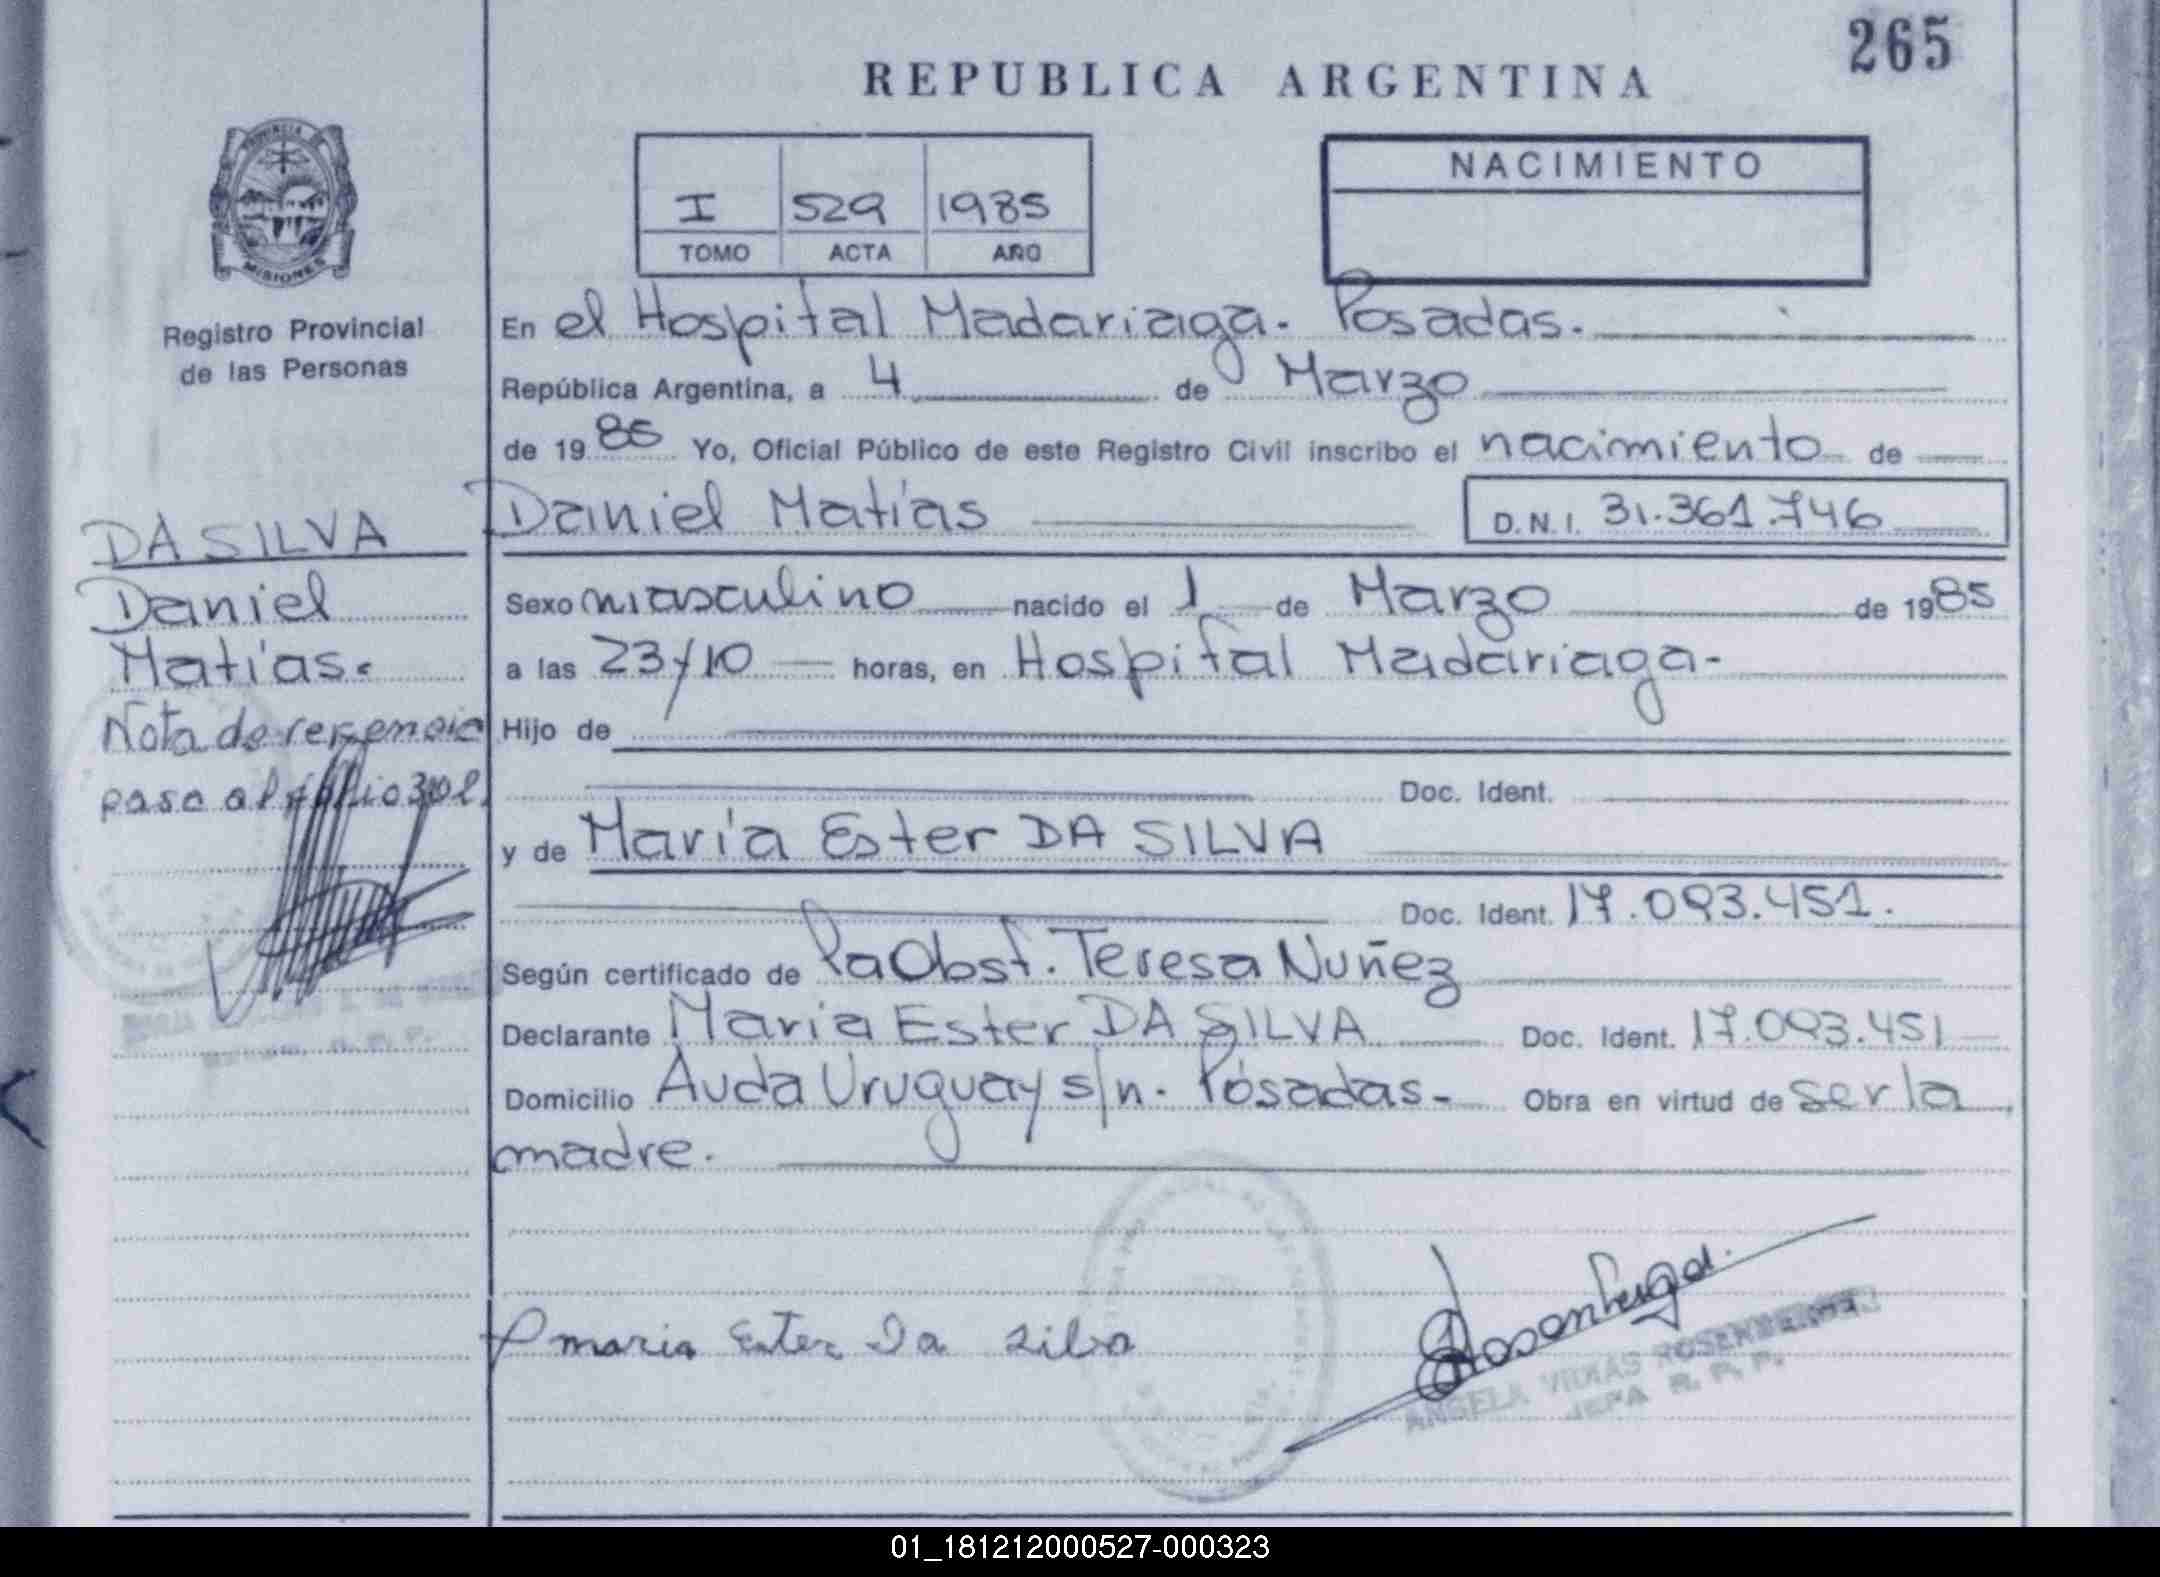 265
REPUBLICA ARGENTINA
PROVINCIA DE
MISIONES
Registro Provincial
de las Personas
I 529 1985
TOMO ACTA AÑO
NACIMIENTO
En el Hospital Madariaga. Posadas.
República Argentina, a 4 de Marzo
de 1985 Yo, Oficial Público de este Registro Civil inscribo el nacimiento de
Daniel Matías D.N.I. 31.361.746
DA SILVA
Daniel
Matías.
Nota de referencia
pasa al folio
Sexo masculino nacido el 1 de Marzo de 1985
a las 23/10 horas, en Hospital Madariaga-
Hijo de
Doc. Ident.
y de María Ester DA SILVA
Doc. Ident. 17.093.451.
Según certificado de la Obst. Teresa Nuñez
Declarante Maria Ester DA SILVA Doc. Ident. 17.093.451
Domicilio Avda Uruguay s/n. Posadas- Obra en virtud de ser la
madre.
maria Ester Da Silva
ANGELA VIDIAS ROSENBERGER
JEFA R. P. P.
01_181212000527-000323